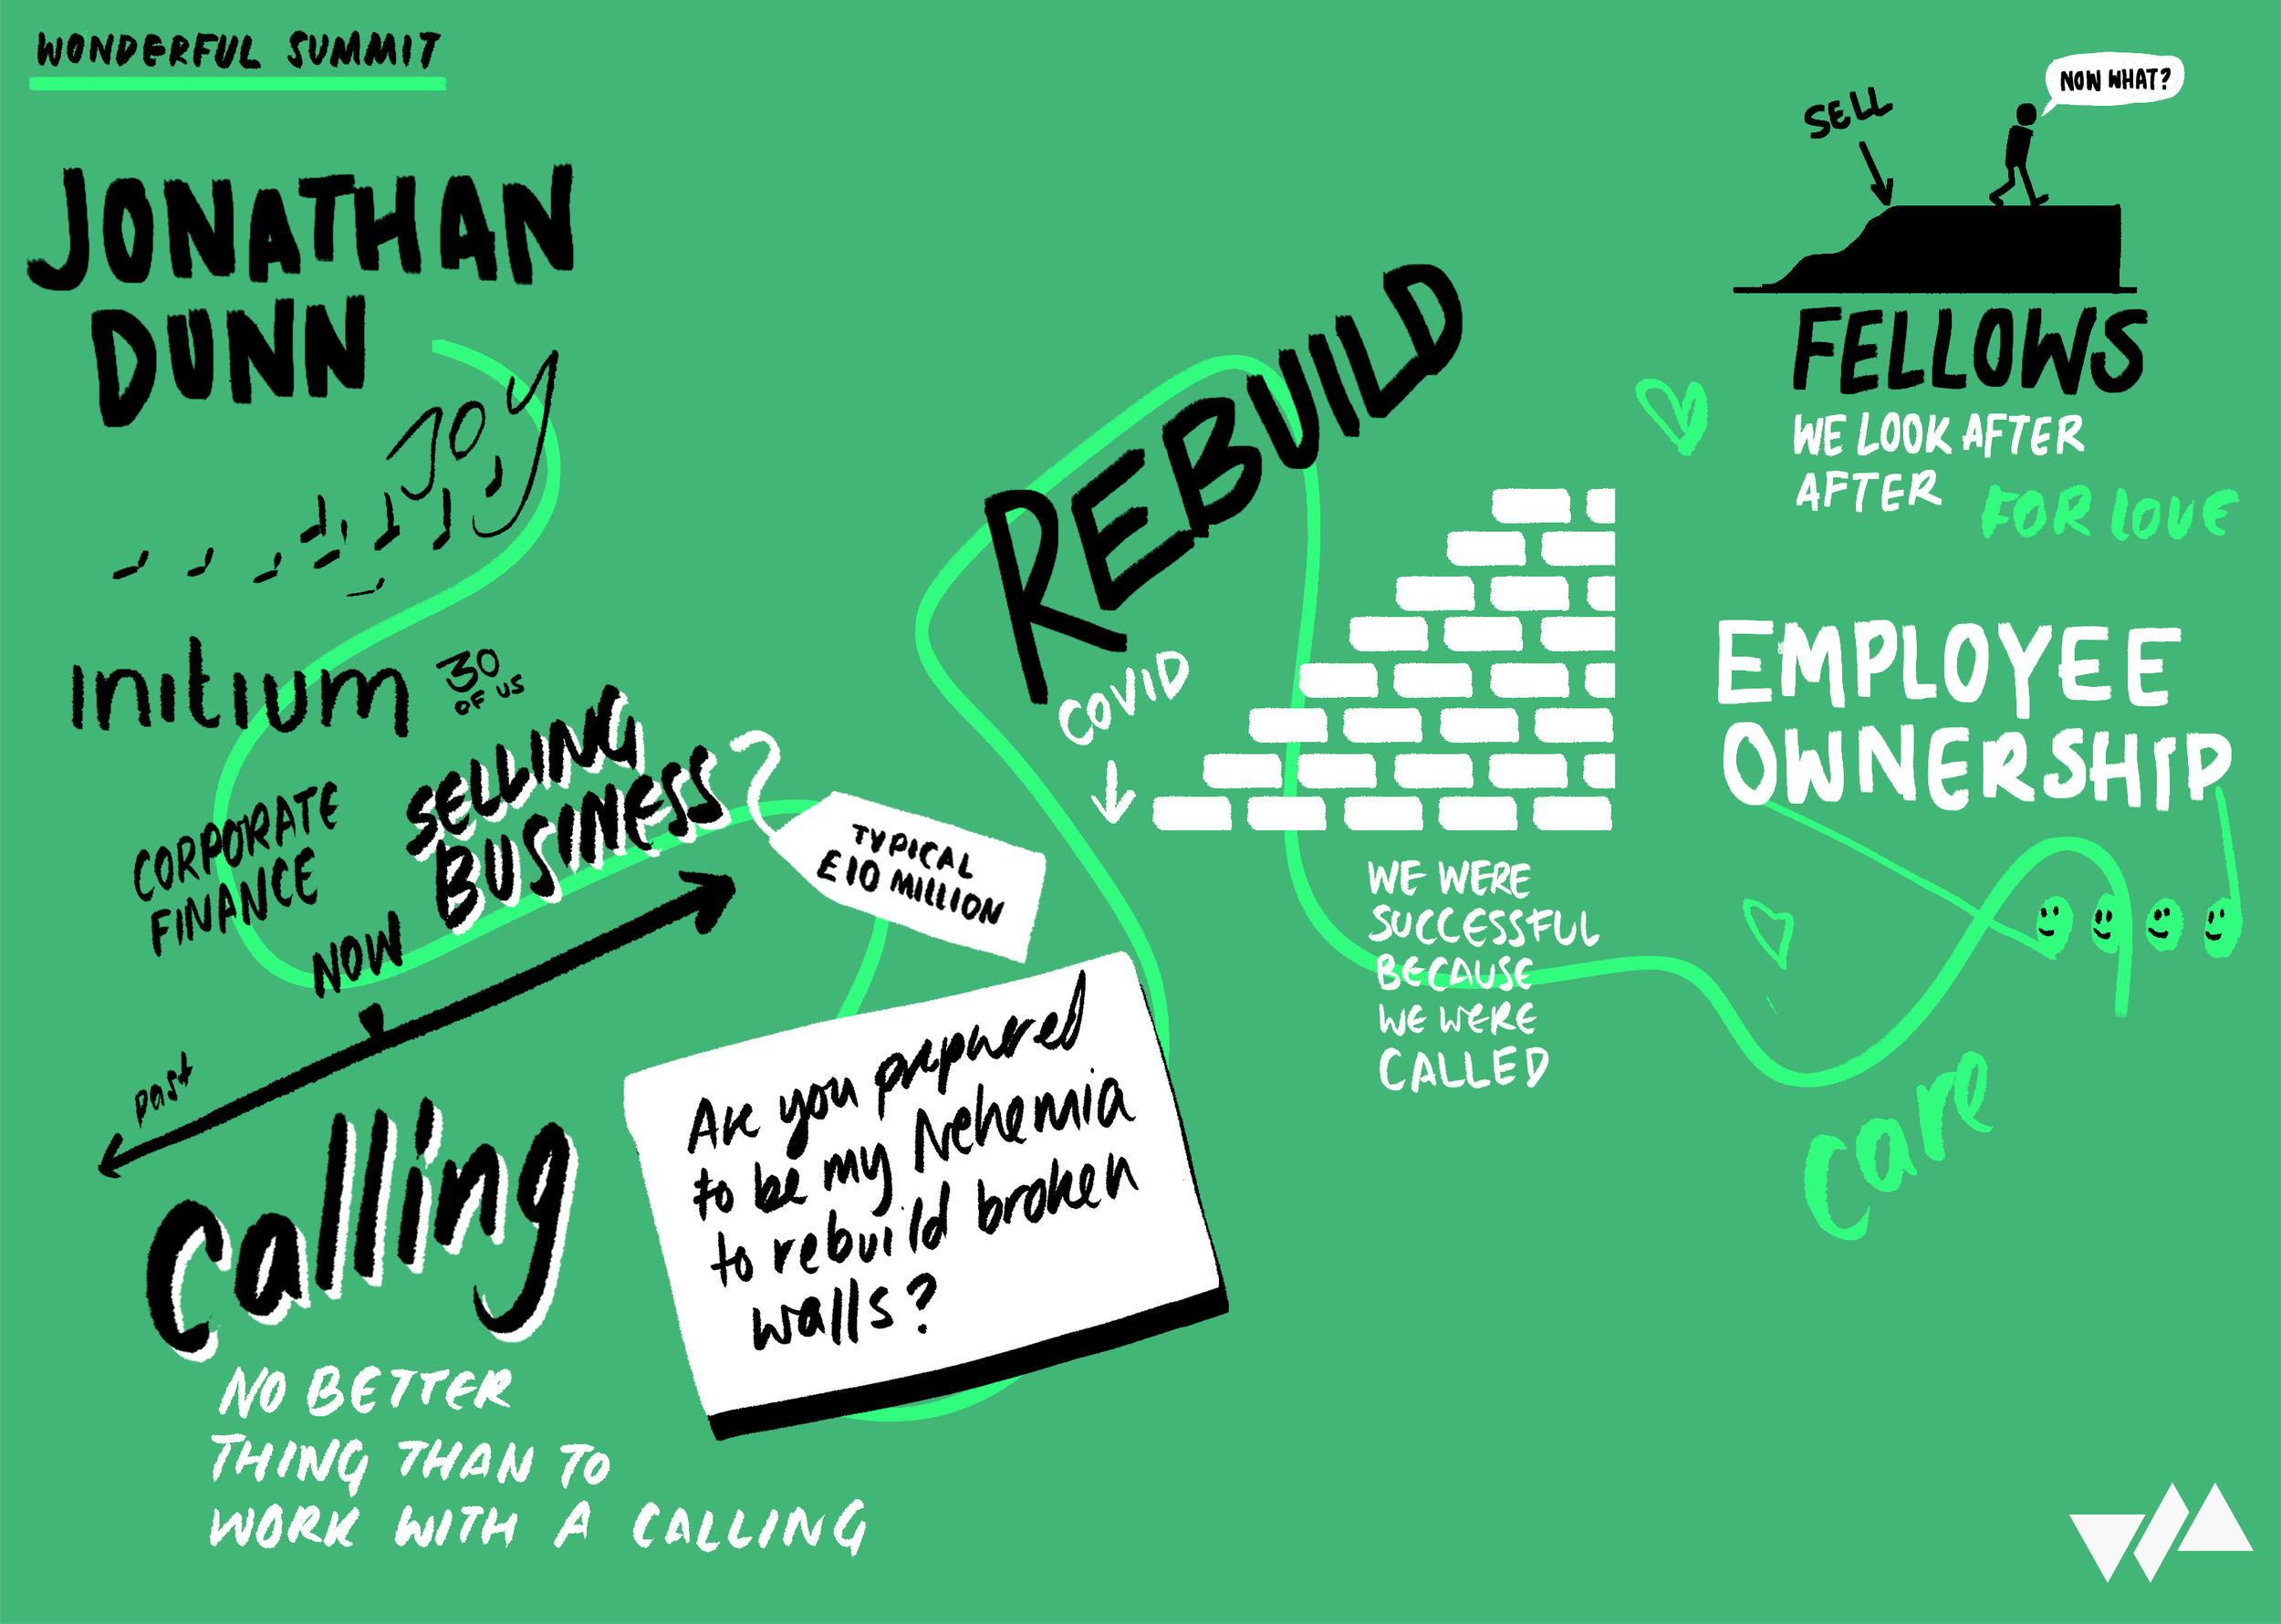 WONDERFUL SUMMIT
JONATHAN
DUNN
JOY
initium
30
OF US
CORPORATE
FINANCE
SELLING
BUSINESS
TYPICAL
£10 MILLION
NOW
past
Calling
NO BETTER
THING THAN TO
WORK WITH A CALLING
Are you prepared
to be my Nehemia
to rebuild broken
walls?
REBUILD
COVID
WE WERE
SUCCESSFUL
BECAUSE
WE WERE
CALLED
SELL
NOW WHAT?
FELLOWS
WE LOOK AFTER
AFTER
FOR LOVE
EMPLOYEE
OWNERSHIP
Care